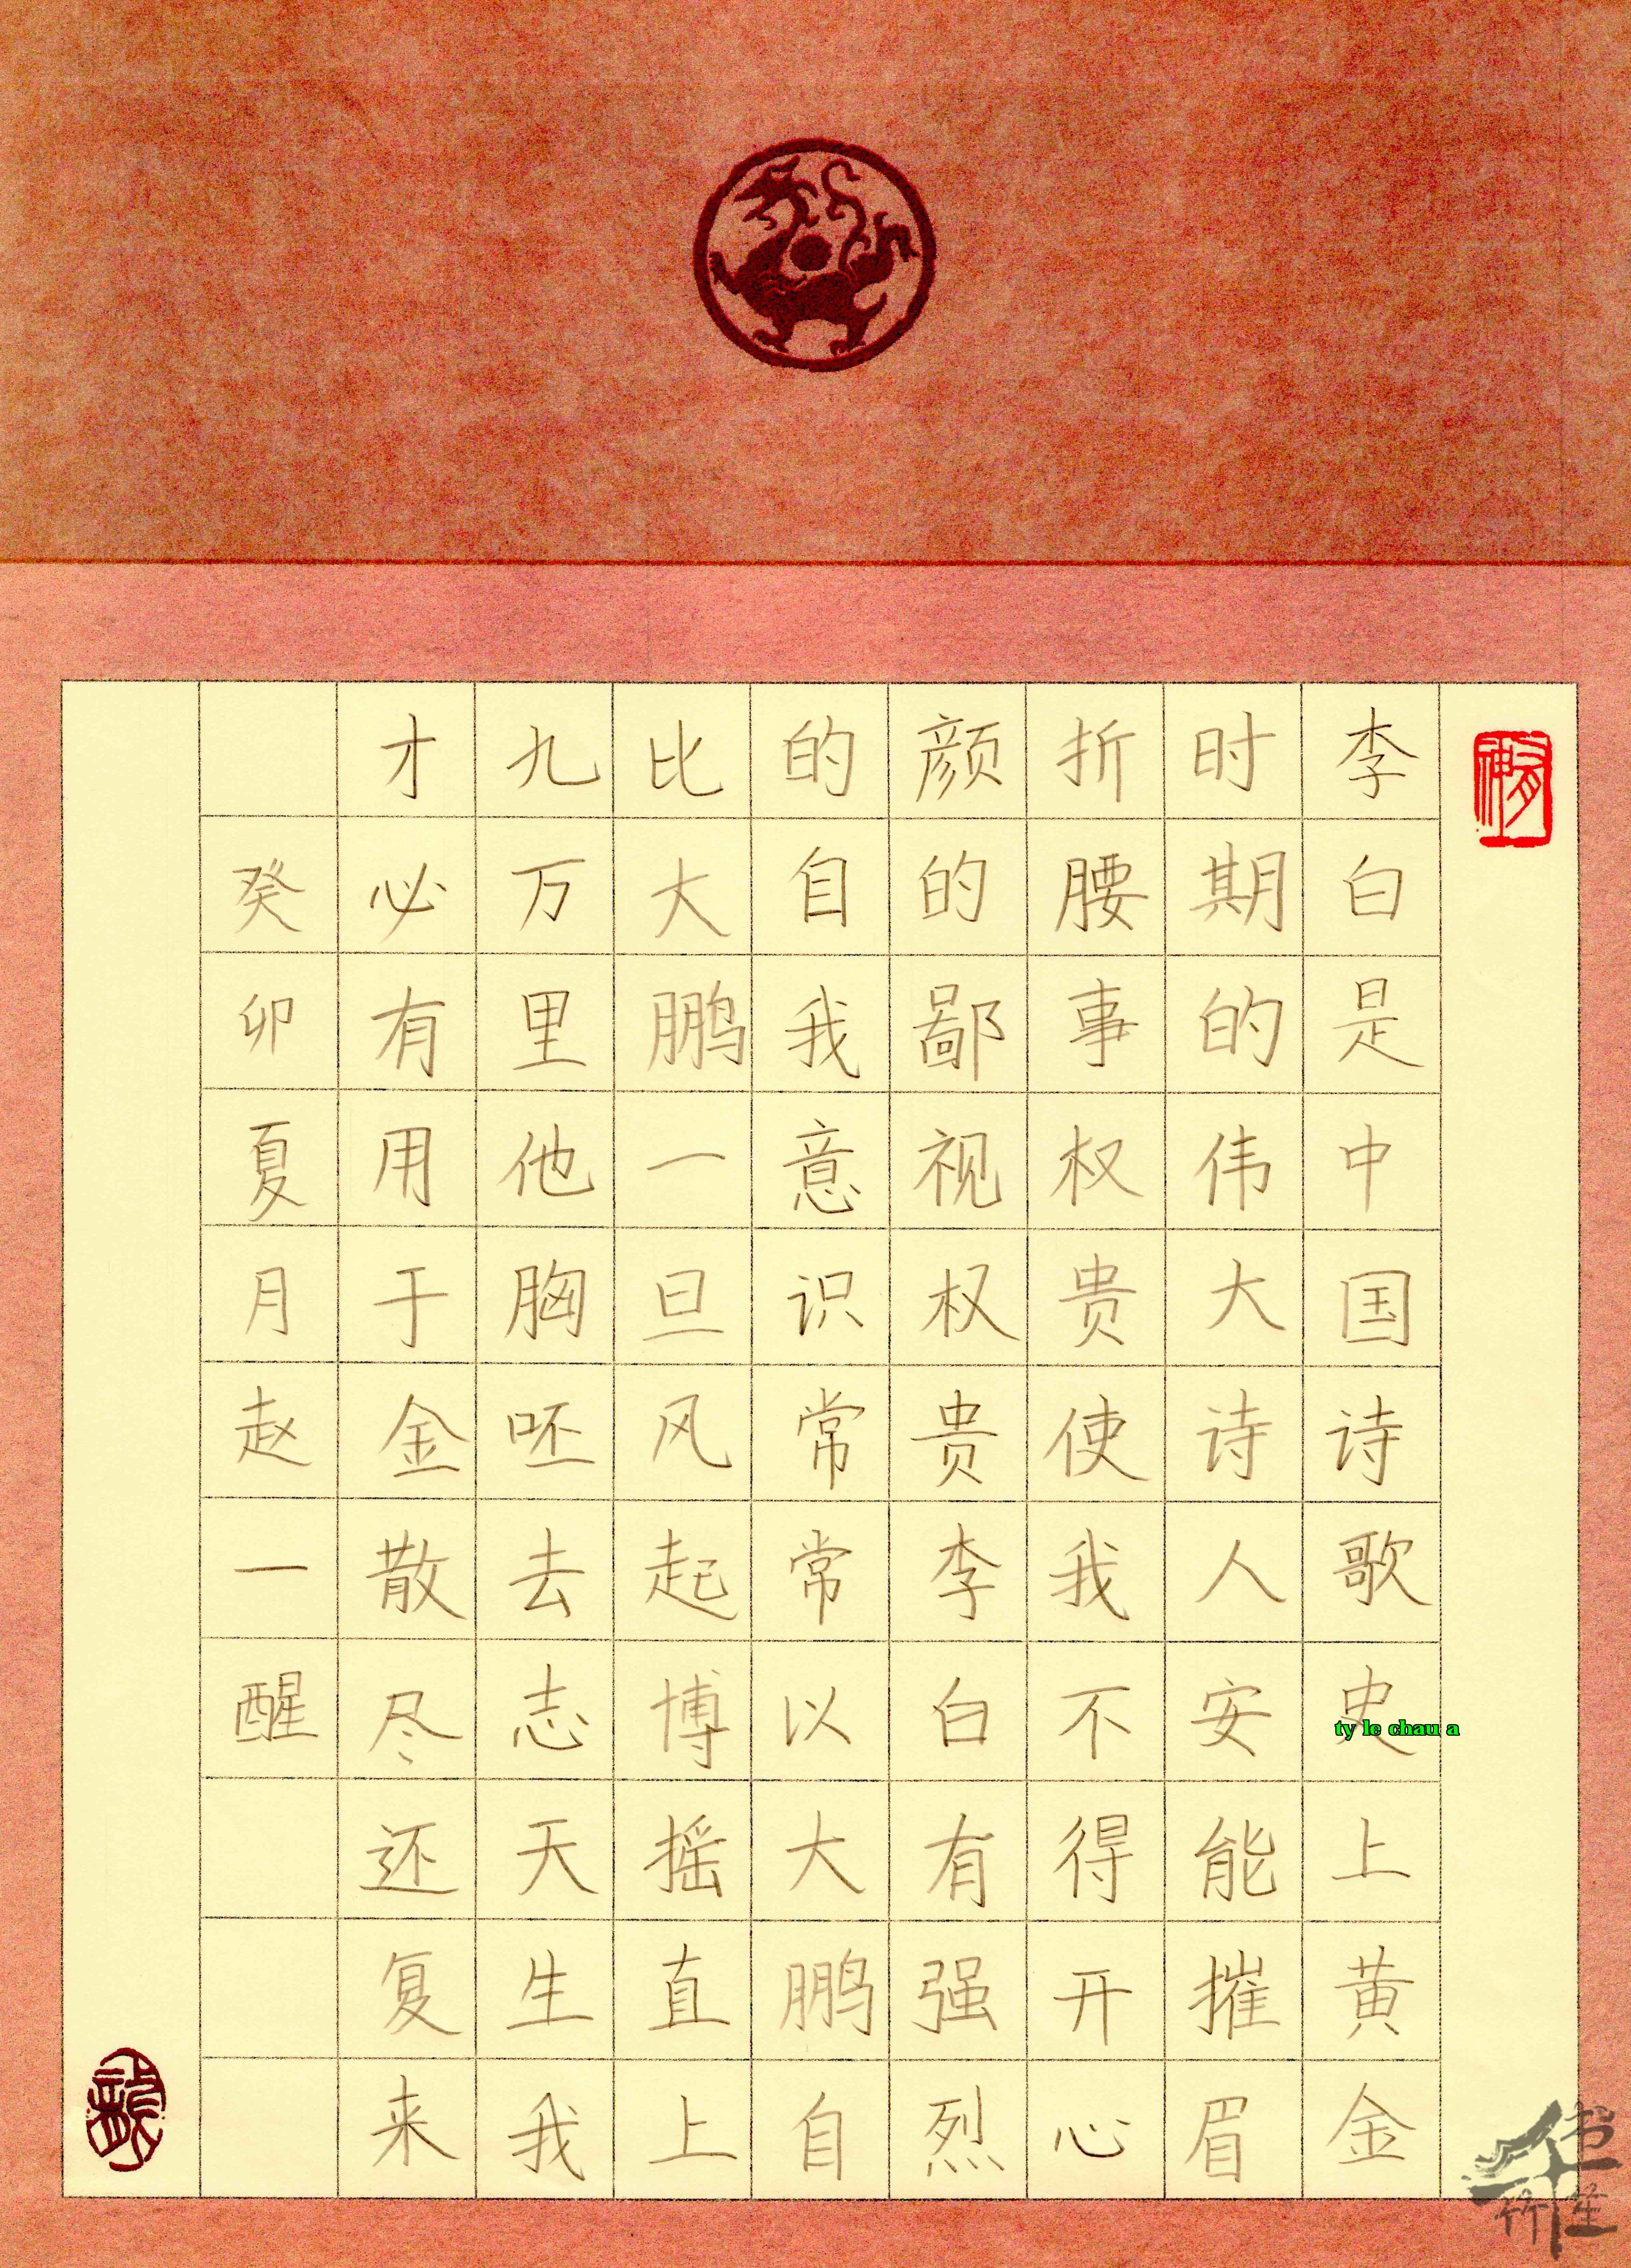 李白是中国诗歌史上黄金
时期的伟大诗人安能摧眉
折腰事权贵使我不得开心
颜的鄙视权贵李白有强烈
的自我意识常常以大鹏自
比大鹏一旦风起博摇直上
九万里他胸呸去志天生我
才必有用于金散尽还复来
癸卯夏月赵一醒
ty le chau a